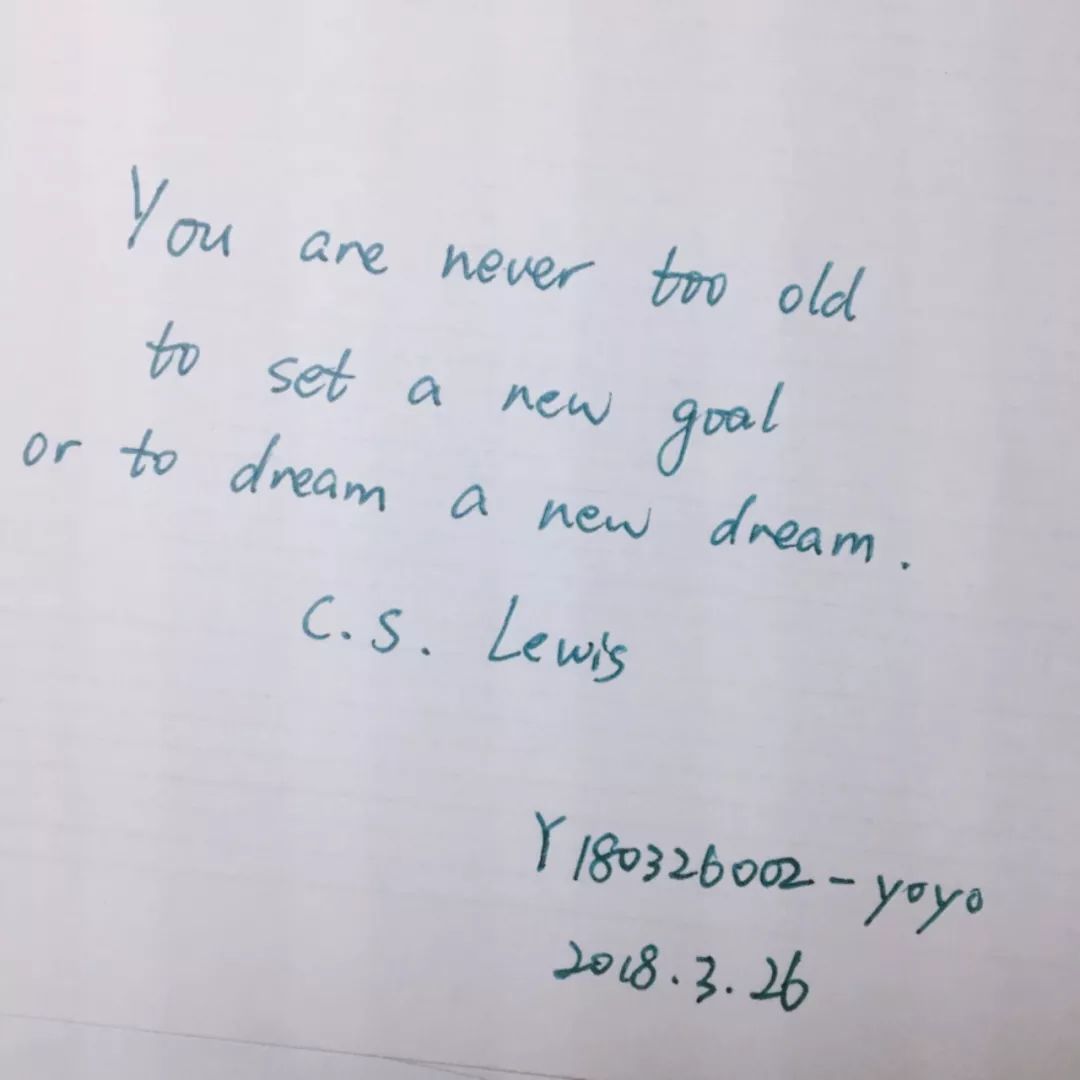 You are never too old
to set a new goal
or to dream a new dream.
C.S. Lewis
Y180326002-yoyo
2018.3.26